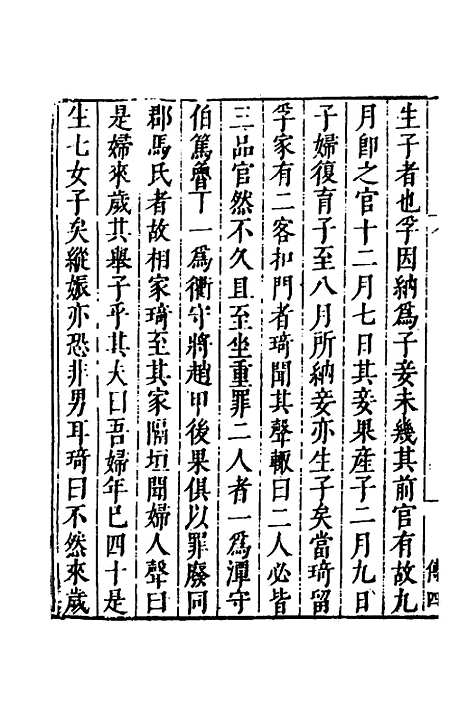 生子者也孚因納爲子妾未幾其前官有故九
月卽之官十二月七日其妾果産子二月九日
子婦復育子至八月所納妾亦生子矣當琦留
孚家有二客扣門者琦聞其聲輙曰二人必皆
三品官然不久且至坐重罪二人者一爲潭守
伯篤魯丁一爲衢守將趙甲後果俱以罪廢同
郡馬氏者故相家琦至其家隔垣聞婦人聲曰
是婦來歲其舉子乎其夫曰吾婦年已四十是
生七女子矣縱娠亦恐非男耳琦曰不然來歲
傳四